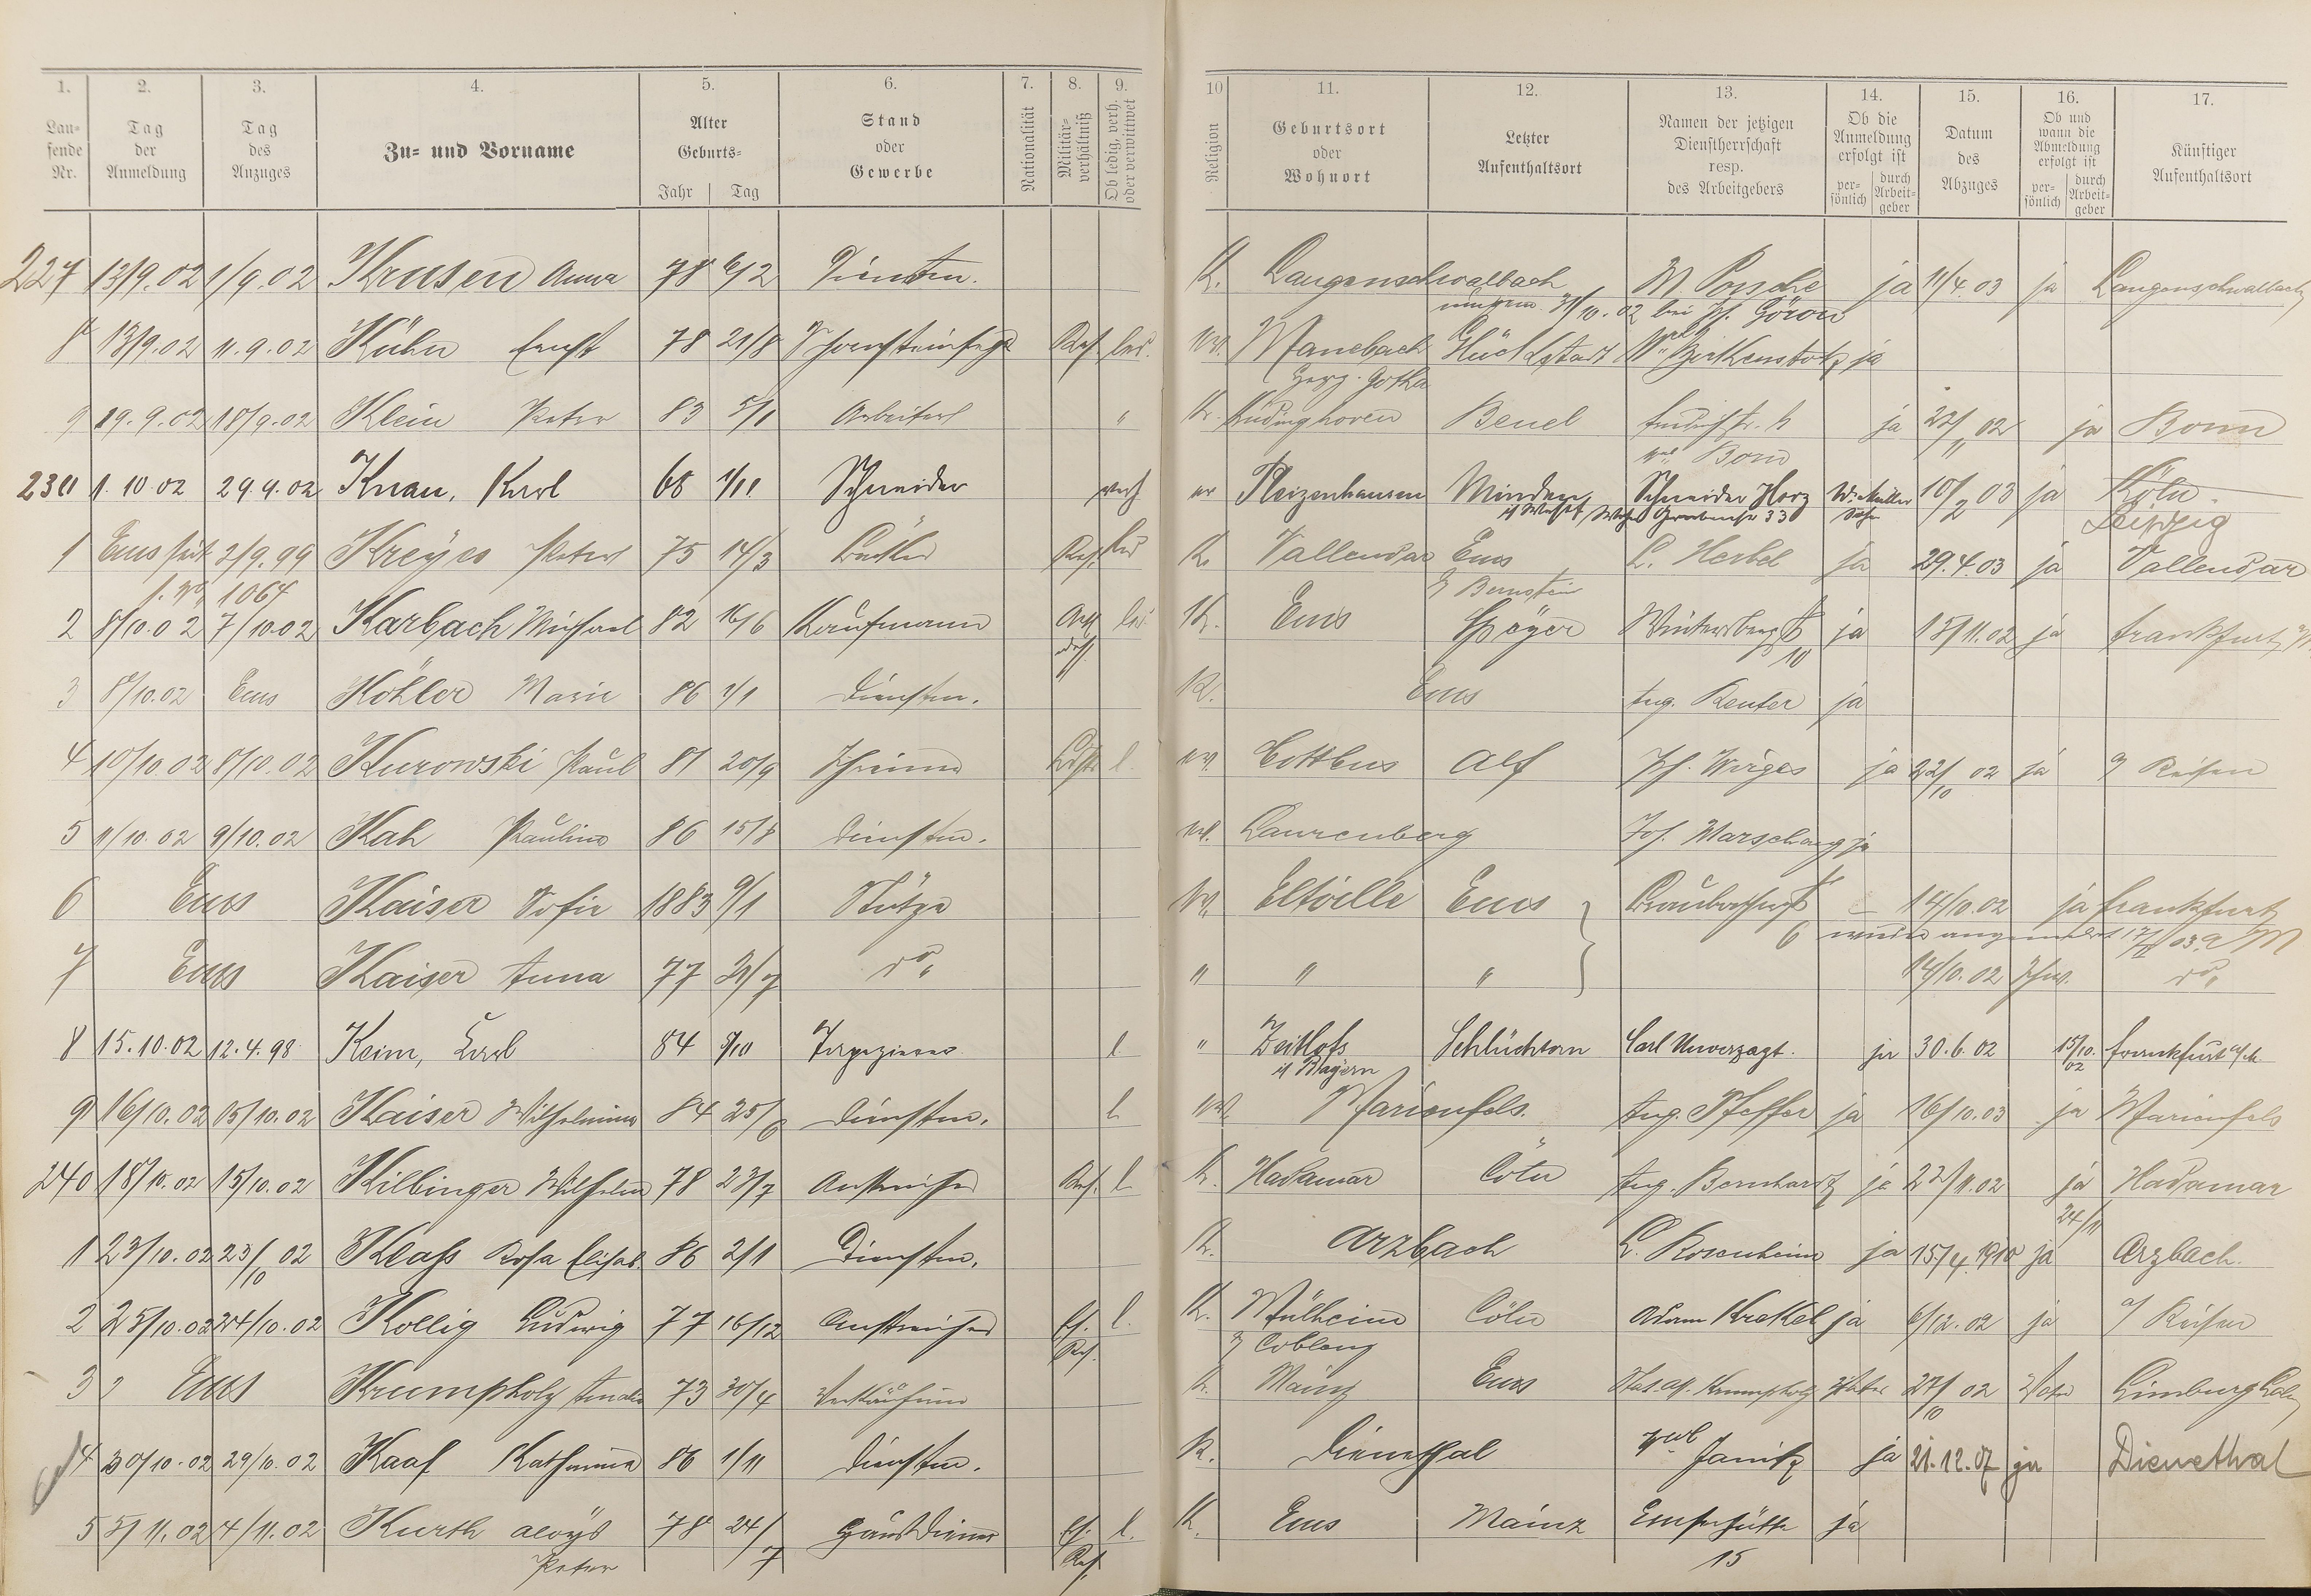 1. 2. 3. 4. 5. 6. 7. 8. 9. 10 11. 12. 13. 14. 15. 16. 17.
Laufende Nr. Tag der Anmeldung Tag des Anzuges Zu- und Vorname Alter Geburts- Jahr Tag Stand oder Gewerbe Nationalität Militärverhältniß Ob ledig, verh. oder verwittwet Religion Geburtsort oder Wohnort Letzter Aufenthaltsort Namen der jetzigen Dienstherrschaft resp. des Arbeitgebers Ob die Anmeldung erfolgt ist persönlich durch Arbeitgeber Datum des Abzuges Ob und wann die Abmeldung erfolgt ist persönlich durch Arbeitgeber Künftiger Aufenthaltsort
227 12/9.02 1/9.02 Krusen Anna 78 6/2 K. Langenschwalbach ja 11/4.03 ja Langenschwalbach
31/10.02 bei
8 13/9.02 11.9.02 Kühn Ernst 78 21/8 Schornsteinfeger Res led. Manebach Glückstadt Birkenstock ja
Herz. Gotha
9 19.9.02 18/9.02 Klein Peter 83 5/1 Arbeiter " K. Küdinghoven Beuel ja 22/11 02 ja Bonn
230 1.10.02 29.9.02 Knau, Karl 68 1/11 Schneider verh ev Pleizenhausen Minden Schneider Herz 10/2 03 ja Köln
i/ Westf. 33 Leipzig
1 Ems seit 2/9.99 Kreyes Peter 75 14/3 Res. led K. Vallendar Ems L. Herbel ja 29.4.03 ja Vallendar
1064 Bernstein
2 8/10.02 7/10.02 Karbach Michael 82 16/6 Kaufmann led K. Ems Wintersbergstr 10 ja 15/11.02 ja Frankfurt a/M
3 8/10.02 Ems Köhler Marie 86 1/1 Dienstm. K. Ems Aug. Reuter ja
4 10/10.02 8/10.02 Kurowski Paul 81 20/9 l. ev. Cottbus Alf Jos. Wirges ja 22/10 02 ja a/ Reisen
5 11/10.02 9/10.02 Kah Pauline 86 15/8 Dienstm. ev. Laurenberg Jos. Marschang ja
6 Ems Kaiser Sofie 1883 9/1 Stütze ev. Eltville Ems 6 14/10.02 ja Frankfurt
a M
7 Ems Kaiser Anna 77 31/7 do " " " 14/10.02 do
8 15.10.02 12.4.98 Keim, Carl 84 3/10 Tapezierer l " Zeitlofs Schlüchtern Carl Unverzagt. ja 30.6.02 15/10.02 Frankfurt a/M
i/ Bayern
9 16/10.02 15/10.02 Kaiser Wilhelmine 84 25/6 Dienstm. l ev. Marienfels. Aug. Pfeffer ja 16/10.03 ja Marienfels
240 18/10.02 15/10.02 Kilbinger Wilhelm 78 23/7 Anstreicher Res. l K. Hadamar Cöln Aug. Bernhardt ja 22/11.02 ja Hadamar
24/11
1 23/10.02 23/10 02 Klaß Rosa Elisab. 86 2/1 Dienstm. K. Arzbach L. Rosenheim ja 15/4.1910 ja Arzbach.
2 25/10.02 24/10.02 Kollig Ludwig 77 16/12 Anstreicher Ers. Res. l. K. Mülheim Cöln Adam Krekel ja 6/12.02 ja a/ Reisen
b/ Coblenz
3 Ems Krumpholz Amalie 73 30/4 Verkäuferin K. Mainz Ems Krumpholz Vater 27/10 02 Vater Limburg Lahn
4 30/10.02 29/10.02 Kaaf Katharina 86 1/11 Dienstm. K. Dienethal ja 21.12.07 ja Dienethal
5 5/11.02 4/11.02 Kurth Aloys Peter 78 24/7 Hausdiener Ers. Res. l. K. Ems Mainz Emserhütte 15 ja